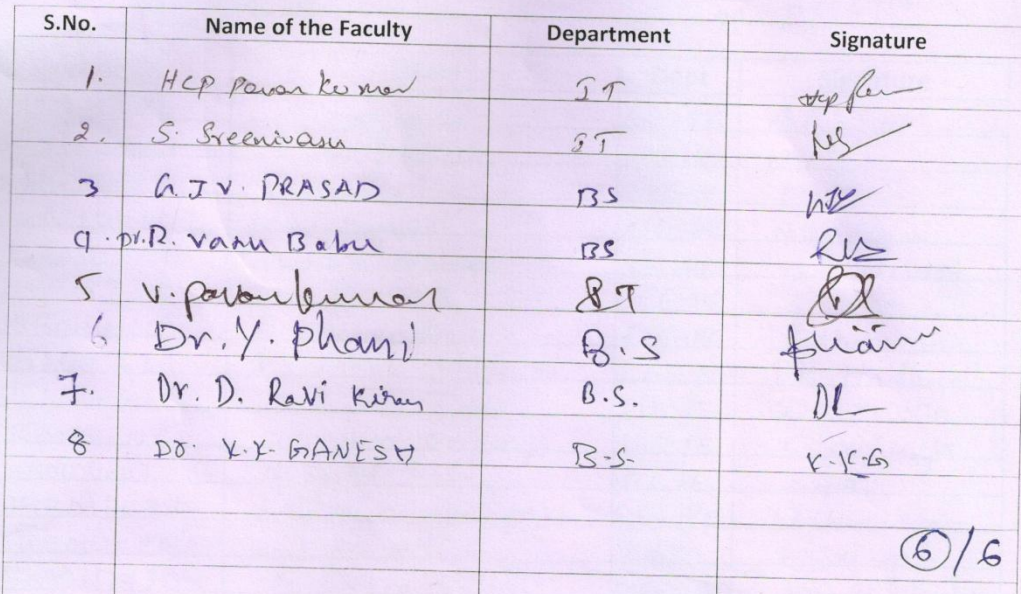 S.No. Name of the Faculty Department Signature
1. HCP Pavan Kumar IT HCP
2. S. Sreenivasu IT
3 G.J.V. PRASAD BS GJV
4. Dr.R. Vasu Babu BS
5 V. Pavan kumar IT
6 Dr. Y. Phani B.S
7. Dr. D. Ravi Kiran B.S.
8 Dr K.K. GANESH B.S. K.K.G
6/6